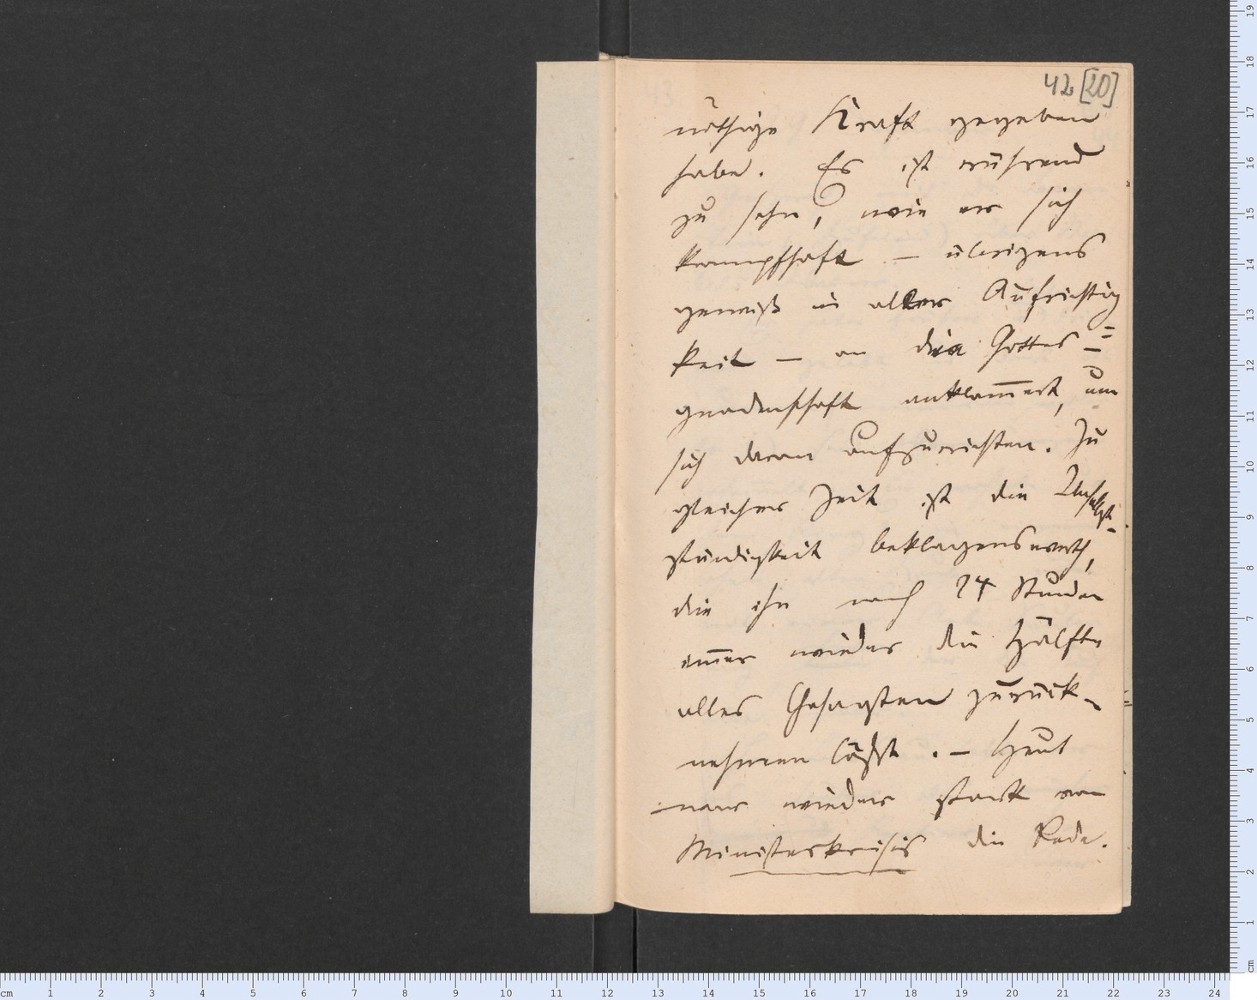 42 [20]
nöthige Kraft gegeben
habe. Es ist rührend
zu sehn, wie er sich
krampfhaft — übrigens
gewiß in aller Aufrichtig
keit — an die Gottes=
gnadenschaft anklam̄ert, um
sich daran aufzurichten. Zu
gleicher Zeit ist die Unselbst-
ständigkeit beklagenswerth,
die ihn nach 24 Stunden
im̄er wieder die Hälfte
alles Gesagten zurück-
nehmen läßt. — Heut
war wieder stark von
Ministerkrisis die Rede.